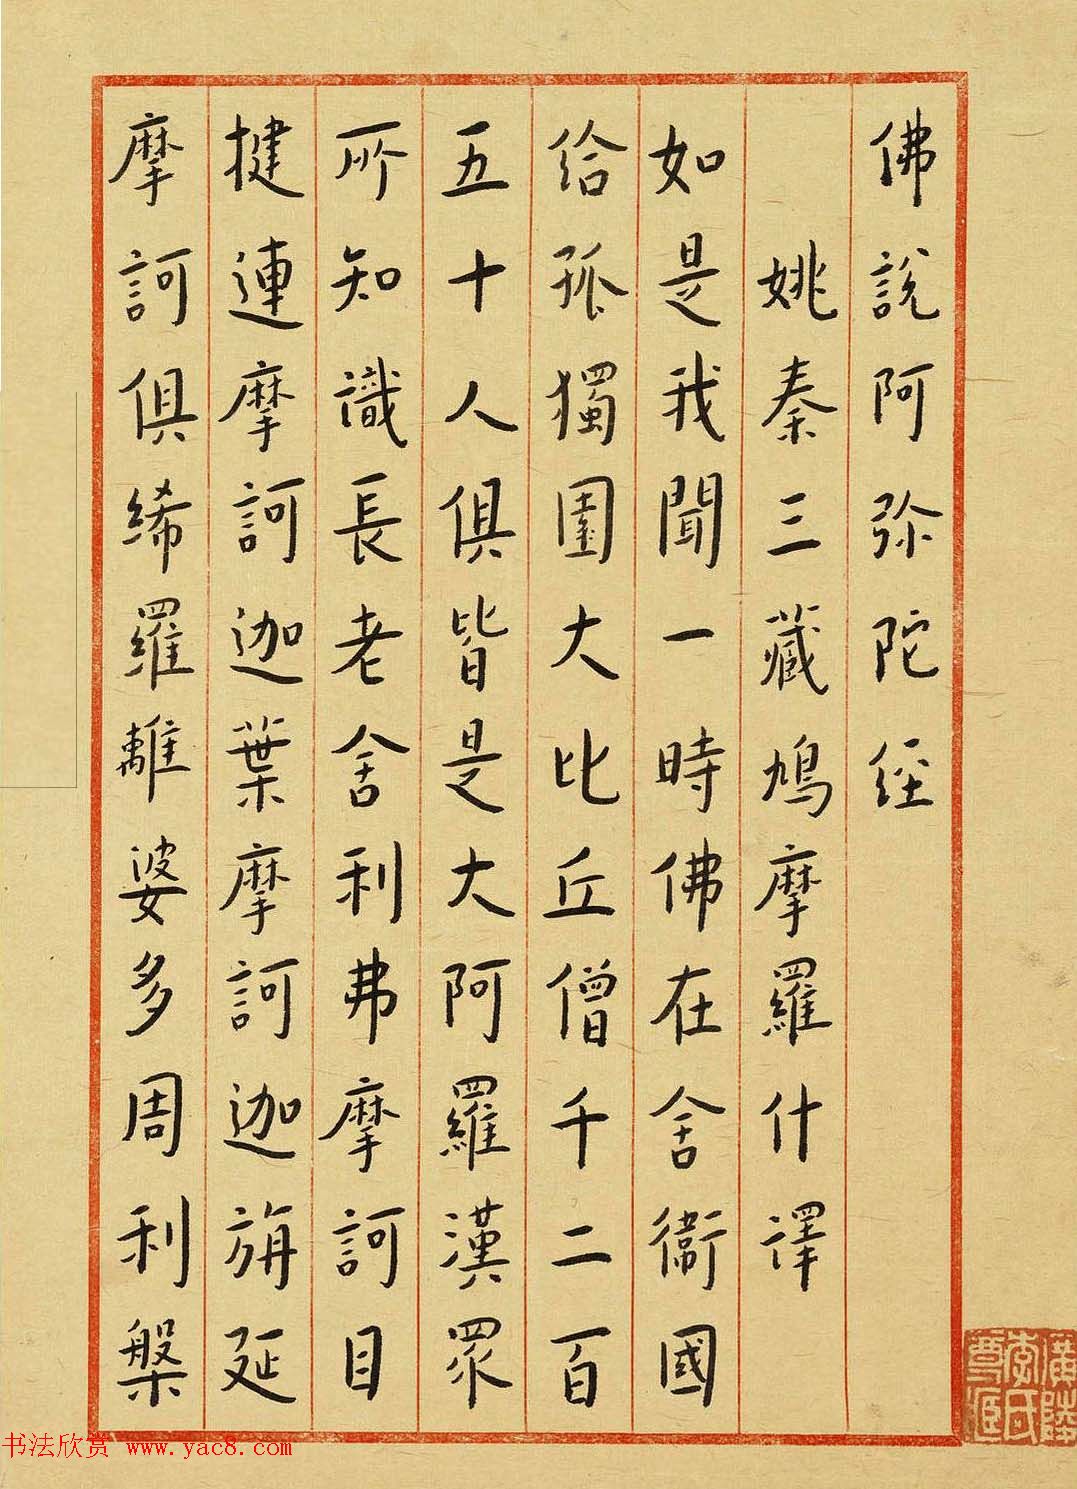 佛說阿弥陀経
姚秦三藏鳩摩羅什譯
如是我聞一時佛在舍衞國
给孤獨園大比丘僧千二百
五十人俱皆是大阿羅漢眾
所知識長老舍利弗摩訶目
揵連摩訶迦葉摩訶迦旃延
摩訶俱絺羅離婆多周利槃
书法欣赏 www.yac8.com